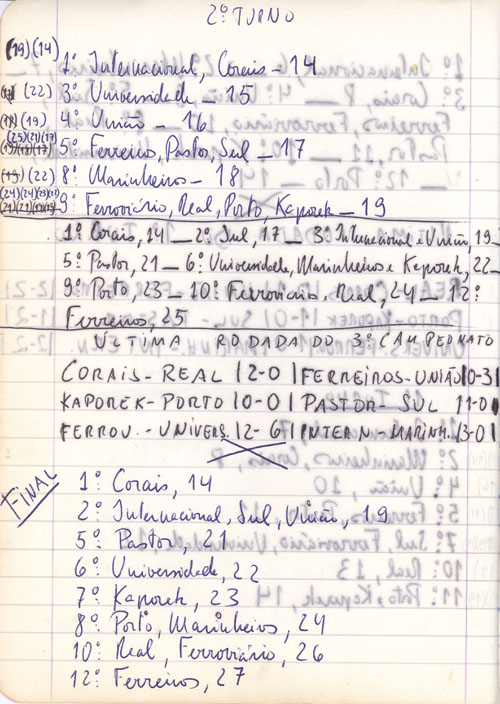 2º TURNO
(19) (14) 1º Internacional, Corais - 14
(22) 3º Universidade - 15
(19) 4º União - 16
(25) (21) (17) 5º Ferreiros, Pastor, Sul - 17
(22) 8º Marinheiros - 18
9º Ferroviário, Real, Porto, Kaporek - 19
1º Corais, 14 - 2º Sul, 17 - 3º Internacional e União, 19 -
5º Pastor, 21 - 6º Universidade, Marinheiros e Kaporek, 22 -
9º Porto, 23 - 10º Ferroviário e Real, 24 - 12º
Ferreiros, 25
ÚLTIMA RODADA DO 3º CAMPEONATO
CORAIS - REAL |2-0| FERREIROS - UNIÃO |0-3|
KAPOREK - PORTO |0-0| PASTOR - SUL |1-0|
FERROV. - UNIVERS. |2-6| INTERN - MARINH. |3-0|
FINAL
1º Corais, 14
2º Internacional, Sul, União, 19
5º Pastor, 21
6º Universidade, 22
7º Kaporek, 23
8º Porto, Marinheiros, 24
10º Real, Ferroviário, 26
12º Ferreiros, 27